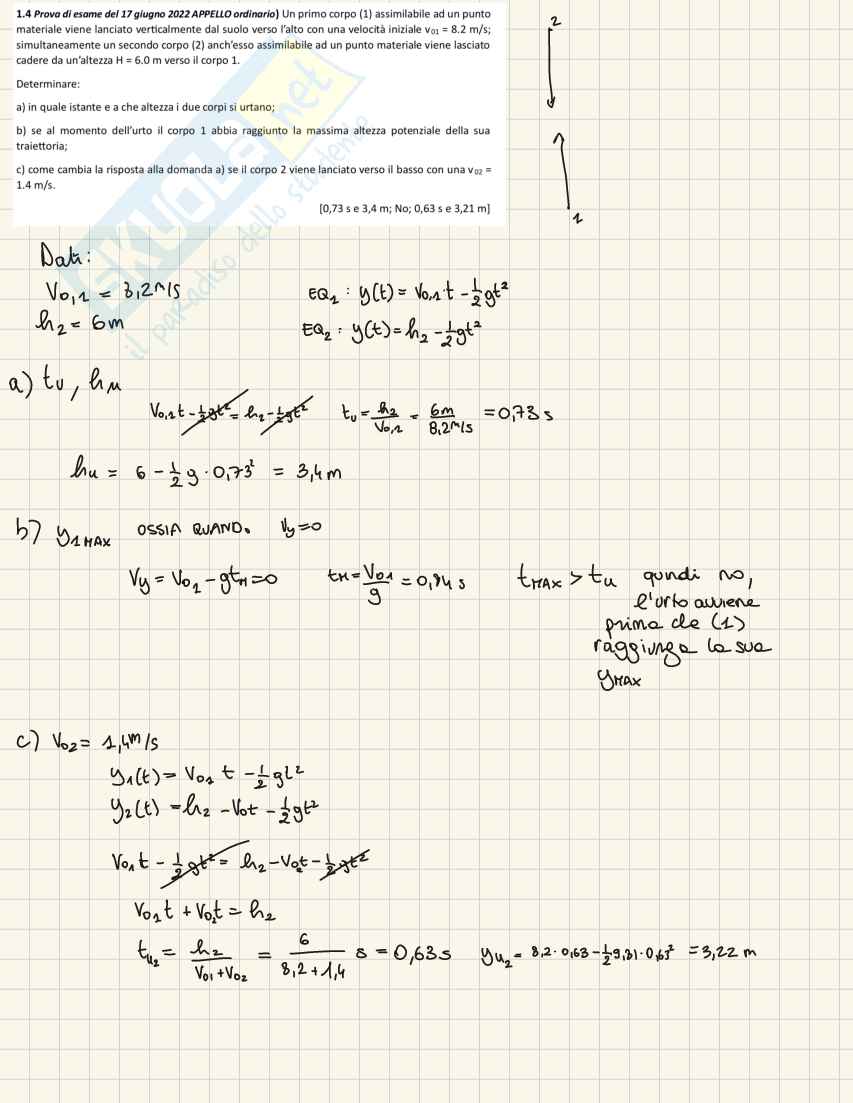 1.4 Prova di esame del 17 giugno 2022 APPELLO ordinario) Un primo corpo (1) assimilabile ad un punto
materiale viene lanciato verticalmente dal suolo verso l'alto con una velocità iniziale v₀₁ = 8.2 m/s;
simultaneamente un secondo corpo (2) anch'esso assimilabile ad un punto materiale viene lasciato
cadere da un'altezza H = 6.0 m verso il corpo 1.
Determinare:
a) in quale istante e a che altezza i due corpi si urtano;
b) se al momento dell'urto il corpo 1 abbia raggiunto la massima altezza potenziale della sua
traiettoria;
c) come cambia la risposta alla domanda a) se il corpo 2 viene lanciato verso il basso con una v₀₂ =
1.4 m/s.
[0,73 s e 3,4 m; No; 0,63 s e 3,21 m]
2
1
SKUOLA.net
il paradiso dello studente
Dati:
V₀,₁ = 8,2 m/s
h₂ = 6m
EQ₁ : y(t) = V₀,₁ t - 1/2 gt²
EQ₂ : y(t) = h₂ - 1/2 gt²
a) tu, hu
V₀,₁t - 1/2 gt² = h₂ - 1/2 gt² tu = h₂/V₀,₁ = 6m/8,2m/s = 0,73 s
hu = 6 - 1/2 g · 0,73² = 3,4 m
b) y₁MAX OSSIA QUANDO Vy = 0
Vy = V₀₁ - gtM = 0 tM = V₀₁/g = 0,84 s tMAX > tu quindi no,
l'urto avviene
prima che (1)
raggiunga la sua
yMAX
c) V₀₂ = 1,4 m/s
y₁(t) = V₀₁ t - 1/2 gt²
y₂(t) = h₂ - V₀t - 1/2 gt²
V₀₁t - 1/2 gt² = h₂ - V₀₂t - 1/2 gt²
V₀₁t + V₀₂t = h₂
tu₂ = h₂/(V₀₁ + V₀₂) = 6/(8,2 + 1,4) s = 0,63 s yu₂ = 8,2 · 0,63 - 1/2 9,81 · 0,63² = 3,22 m